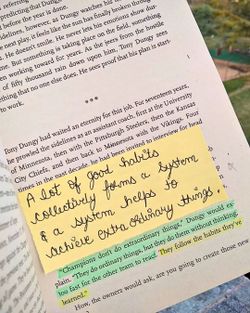 referring
that this
before the year is done.
followers, or Dungy watches his
next play, it feels like the sun has finally broken through
He doesn't smile. He never lets his emotions show
one. But something is taking place on the field, something
been working toward for years. As the jeers from the hostile
of fifty thousand rain down upon him, Tony Dungy sees
something that no one else does. He sees proof that his plan is start-
***
Tony Dungy had waited an eternity for this job. For seventeen years,
he prowled the sidelines as an assistant coach, first at the University
of Minnesota, then with the Pittsburgh Steelers, then the Kansas
City Chiefs, and then back to Minnesota with the Vikings. Four
times in the past decade, he had been invited to interview for head
A lot of good habits
collectively forms a system
& a system helps to
achieve extra ordinary things.
"Champions don't do extraordinary things," Dungy would ex-
plain. "They do ordinary things, but they do them without thinking,
too fast for the other team to react. They follow the habits they've
learned."
How, the owners would ask, are you going to create those new